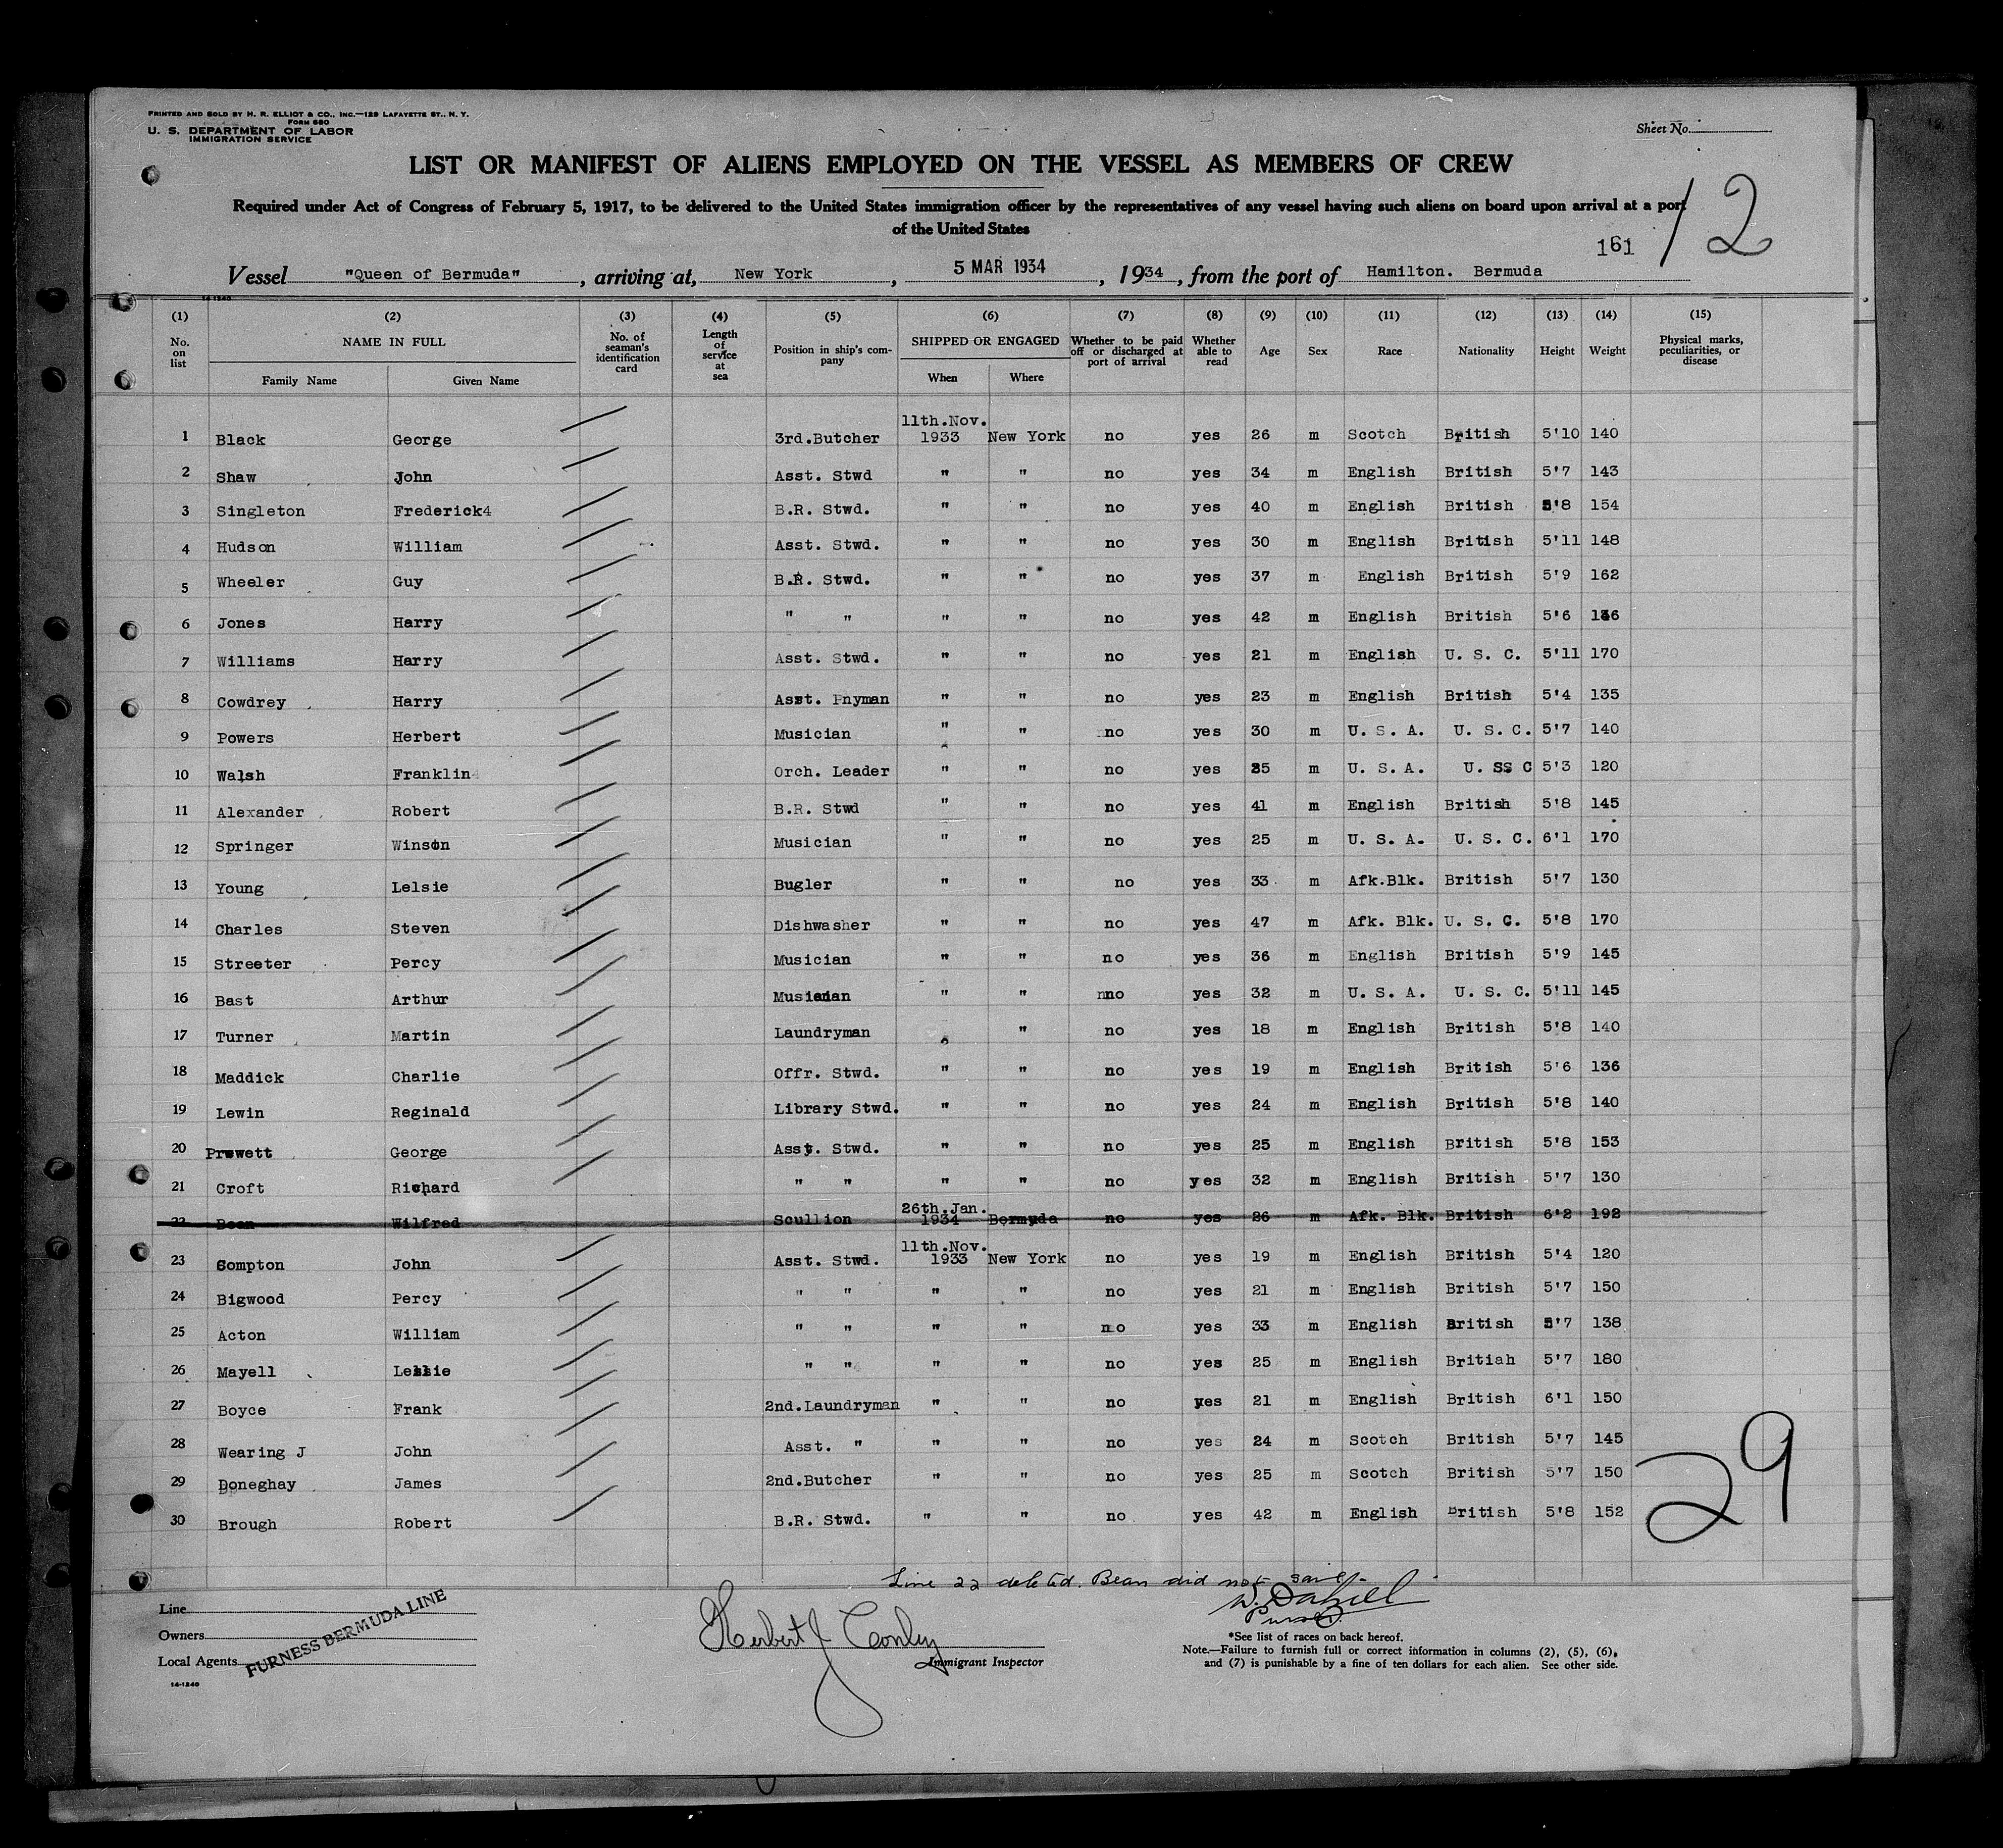 PRINTED AND SOLD BY H. R. ELLIOT & CO., INC.—129 LAFAYETTE ST., N. Y.
FORM 680
U. S. DEPARTMENT OF LABOR
IMMIGRATION SERVICE
Sheet No.
LIST OR MANIFEST OF ALIENS EMPLOYED ON THE VESSEL AS MEMBERS OF CREW
Required under Act of Congress of February 5, 1917, to be delivered to the United States immigration officer by the representatives of any vessel having such aliens on board upon arrival at a port
of the United States
161 12
Vessel "Queen of Bermuda", arriving at, New York, 5 MAR 1934, 1934, from the port of Hamilton. Bermuda
14-1240
(1) (2) (3) (4) (5) (6) (7) (8) (9) (10) (11) (12) (13) (14) (15)
No. on list NAME IN FULL Family Name Given Name No. of seaman's identification card Length of service at sea Position in ship's company SHIPPED OR ENGAGED When Where Whether to be paid off or discharged at port of arrival Whether able to read Age Sex Race Nationality Height Weight Physical marks, peculiarities, or disease
1 Black George 3rd.Butcher 11th.Nov. 1933 New York no yes 26 m Scotch British 5'10 140
2 Shaw John Asst. Stwd " " no yes 34 m English British 5'7 143
3 Singleton Frederick4 B.R. Stwd. " " no yes 40 m English British 5'8 154
4 Hudson William Asst. Stwd. " " no yes 30 m English British 5'11 148
5 Wheeler Guy B.R. Stwd. " " no yes 37 m English British 5'9 162
6 Jones Harry " " " " no yes 42 m English British 5'6 136
7 Williams Harry Asst. Stwd. " " no yes 21 m English U. S. C. 5'11 170
8 Cowdrey Harry Asst. Pnyman " " no yes 23 m English British 5'4 135
9 Powers Herbert Musician " " no yes 30 m U. S. A. U. S. C. 5'7 140
10 Walsh Franklin Orch. Leader " " no yes 25 m U. S. A. U. SS C 5'3 120
11 Alexander Robert B.R. Stwd " " no yes 41 m English British 5'8 145
12 Springer Winson Musician " " no yes 25 m U. S. A. U. S. C. 6'1 170
13 Young Lelsie Bugler " " no yes 33 m Afk.Blk. British 5'7 130
14 Charles Steven Dishwasher " " no yes 47 m Afk. Blk. U. S. C. 5'8 170
15 Streeter Percy Musician " " no yes 36 m English British 5'9 145
16 Bast Arthur Musician " " nno yes 32 m U. S. A. U. S. C. 5'11 145
17 Turner Martin Laundryman " no yes 18 m English British 5'8 140
18 Maddick Charlie Offr. Stwd. " " no yes 19 m English British 5'6 136
19 Lewin Reginald Library Stwd. " " no yes 24 m English British 5'8 140
20 Prewett George Asst. Stwd. " " no yes 25 m English British 5'8 153
21 Croft Richard " " " " no yes 32 m English British 5'7 130
22 Bean Wilfred Scullion 26th.Jan. 1934 Bermuda no yes 26 m Afk. Blk. British 6'2 192
23 Compton John Asst. Stwd. 11th.Nov. 1933 New York no yes 19 m English British 5'4 120
24 Bigwood Percy " " " " no yes 21 m English British 5'7 150
25 Acton William " " " " no yes 33 m English British 5'7 138
26 Mayell Leslie " " " " no yes 25 m English Britiah 5'7 180
27 Boyce Frank 2nd.Laundryman " " no yes 21 m English British 6'1 150
28 Wearing J John Asst. " " " no yes 24 m Scotch British 5'7 145
29 Doneghay James 2nd.Butcher " " no yes 25 m Scotch British 5'7 150
30 Brough Robert B.R. Stwd. " " no yes 42 m English British 5'8 152
29
Line 22 deleted. Bean did not sail.
W. Dahill
Purser.
Line
Owners
Local Agents
FURNESS BERMUDA LINE
14-1240
Herbert J Conley
Immigrant Inspector
*See list of races on back hereof.
Note.—Failure to furnish full or correct information in columns (2), (5), (6),
and (7) is punishable by a fine of ten dollars for each alien. See other side.